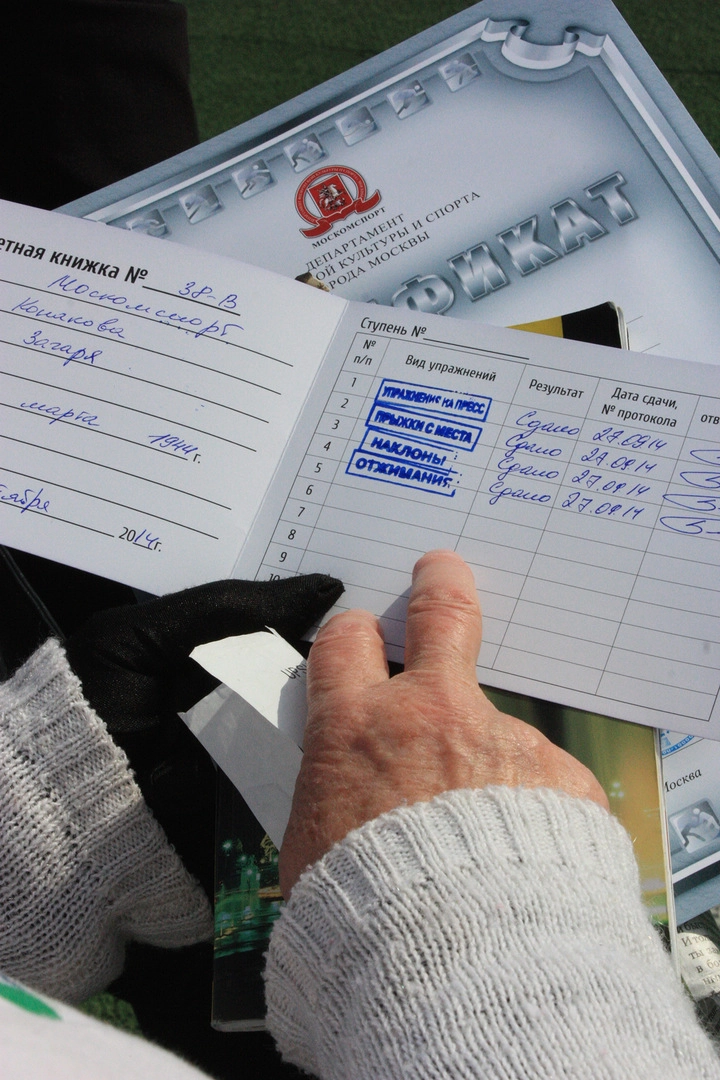 МОСКОМСПОРТ
ДЕПАРТАМЕНТ
ОЙ КУЛЬТУРЫ И СПОРТА
РОДА МОСКВЫ
ФИКАТ
етная книжка № 38-В
Москомспорт
Конакова
Загаря
марта 1944г.
тября
2014г.
Ступень №
№ п/п Вид упражнений Результат Дата сдачи, № протокола отв
1 УПРАЖНЕНИЯ НА ПРЕСС Сдано 27.09.14
2 ПРЫЖКИ С МЕСТА Сдано 27.09.14
3 НАКЛОНЫ Сдано 27.09.14
4 ОТЖИМАНИЯ Сдано 27.09.14
5
6
7
8
9
10
UPS
Москва